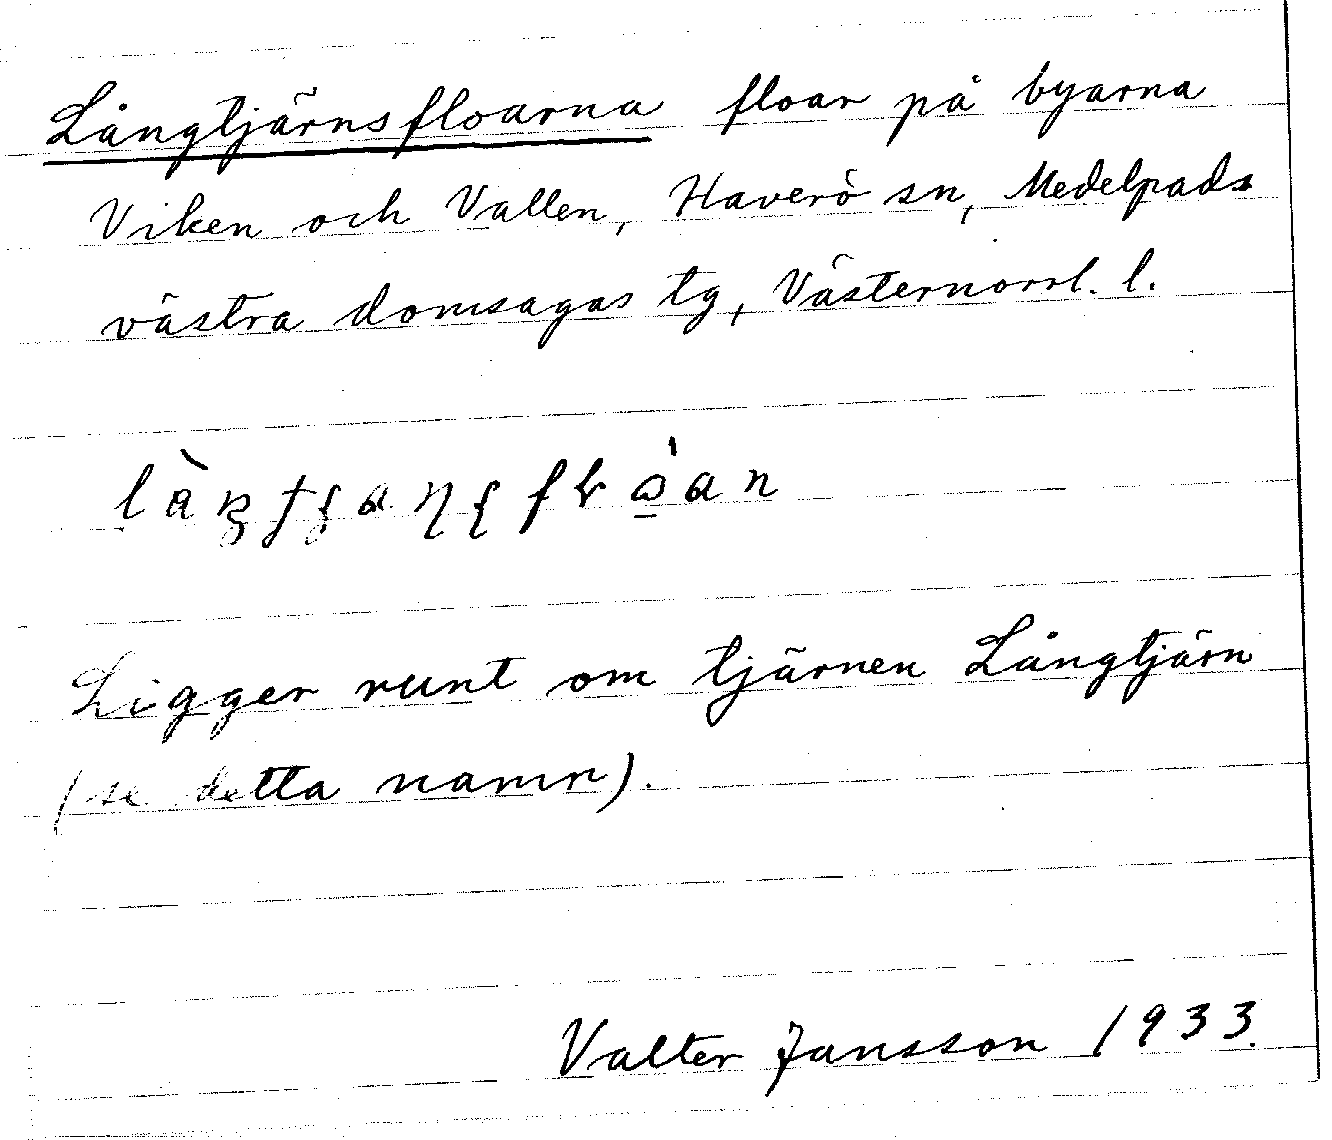 Långtjärnsfloarna floar på byarna
Viken och Vallen, Haverö sn, Medelpads
västra domsagas tg, Västernorrl. l.
Ligger runt om tjärnen Långtjärn
(se detta namn).
Valter Jansson 1933.